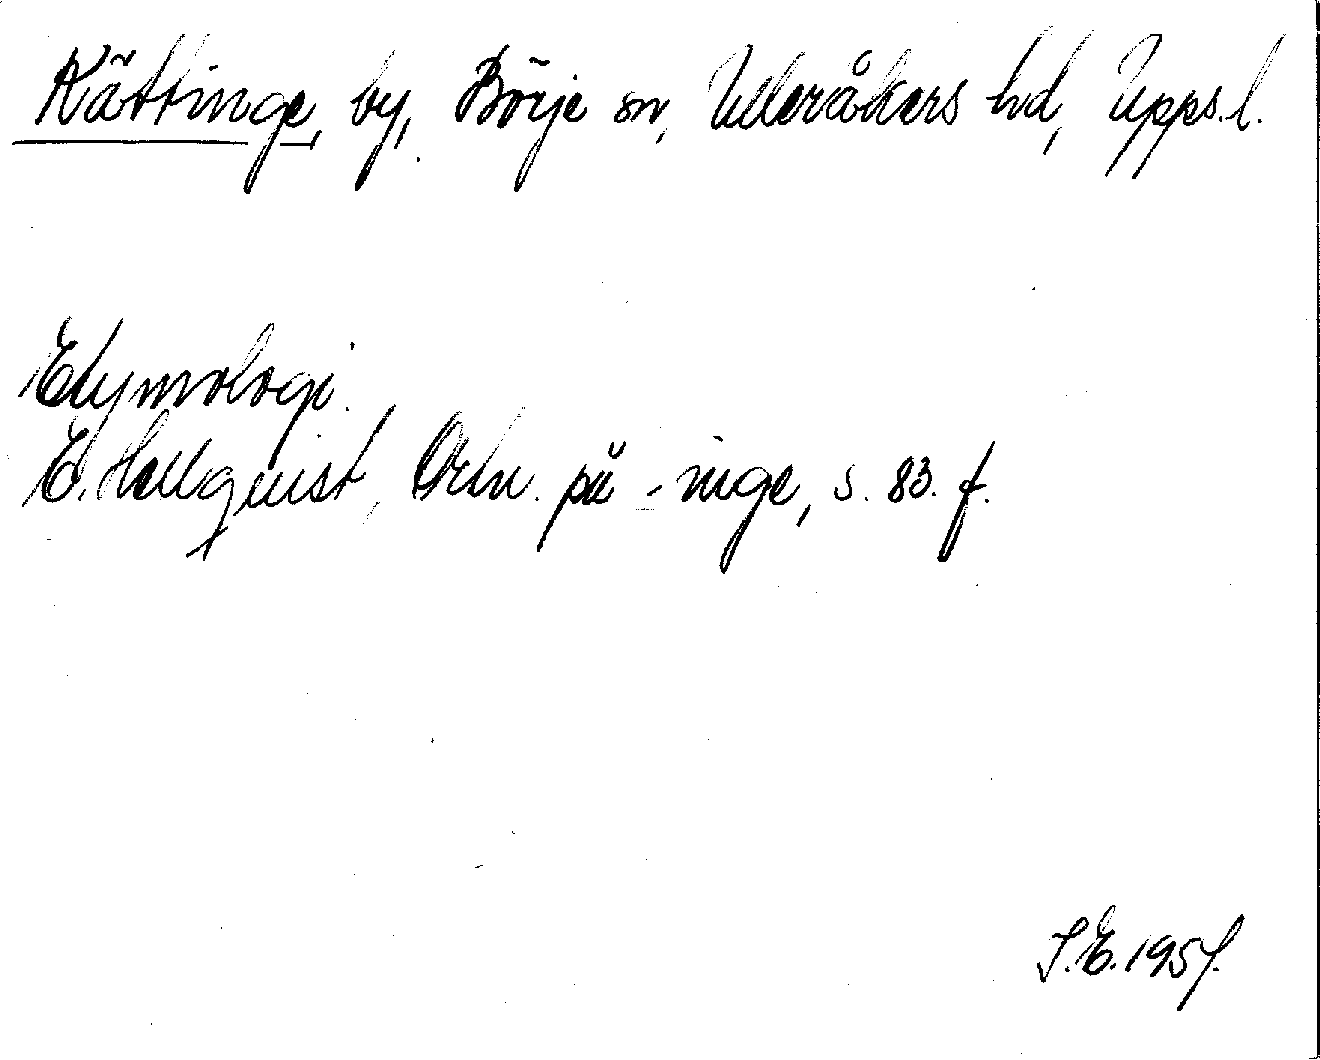 Kättinge, by, Börje sn, Ulleråkers hd, Upps. l.
Etymologi.
E. Hellquist, Ortn. på -inge, s. 83. f.
S.E. 1957.